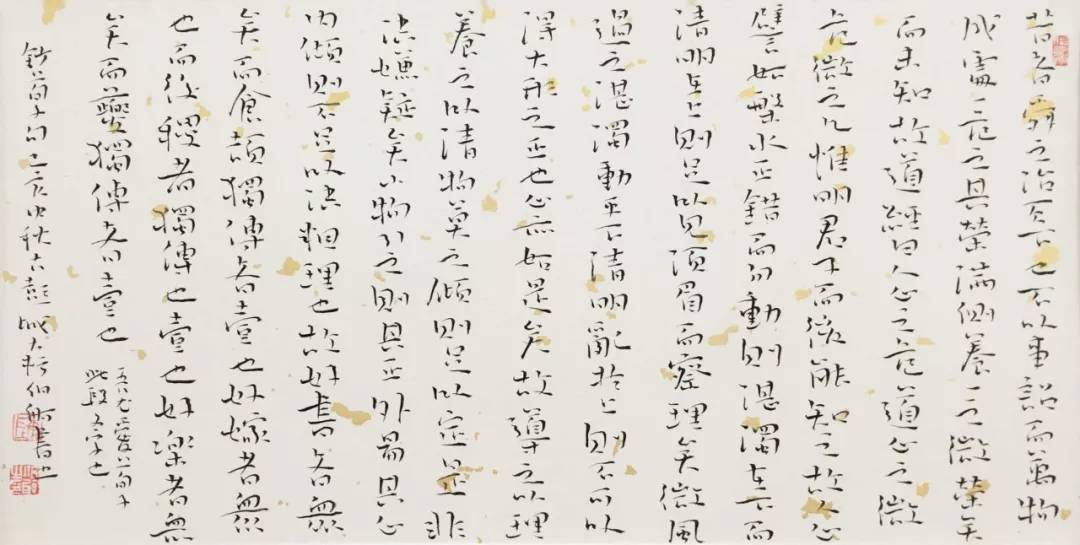 昔者舜之治天下也不以事詔而萬物
成處一危之其榮滿側養一之微榮矣
而未知故道經曰人心之危道心之微
危微之几惟明君子而後能知之故人心
譬如槃水正錯而勿動則湛濁在下而
清明在上則足以見須眉而察理矣微風
過之湛濁動乎下清明亂於上則不可以
得大形之正也心亦如是矣故導之以理
養之以清物莫之傾則足以定是非
決嫌疑矣小物引之則其正外易其心
内傾則不足以決粗理也故好書者眾
矣而倉頡獨傳者壹也好稼者眾
也而后稷者獨傳也壹也好樂者眾
矣而夔獨傳者壹也
愛荀子
此段文字也
節荀子句己亥中秋古彭城大伯書也